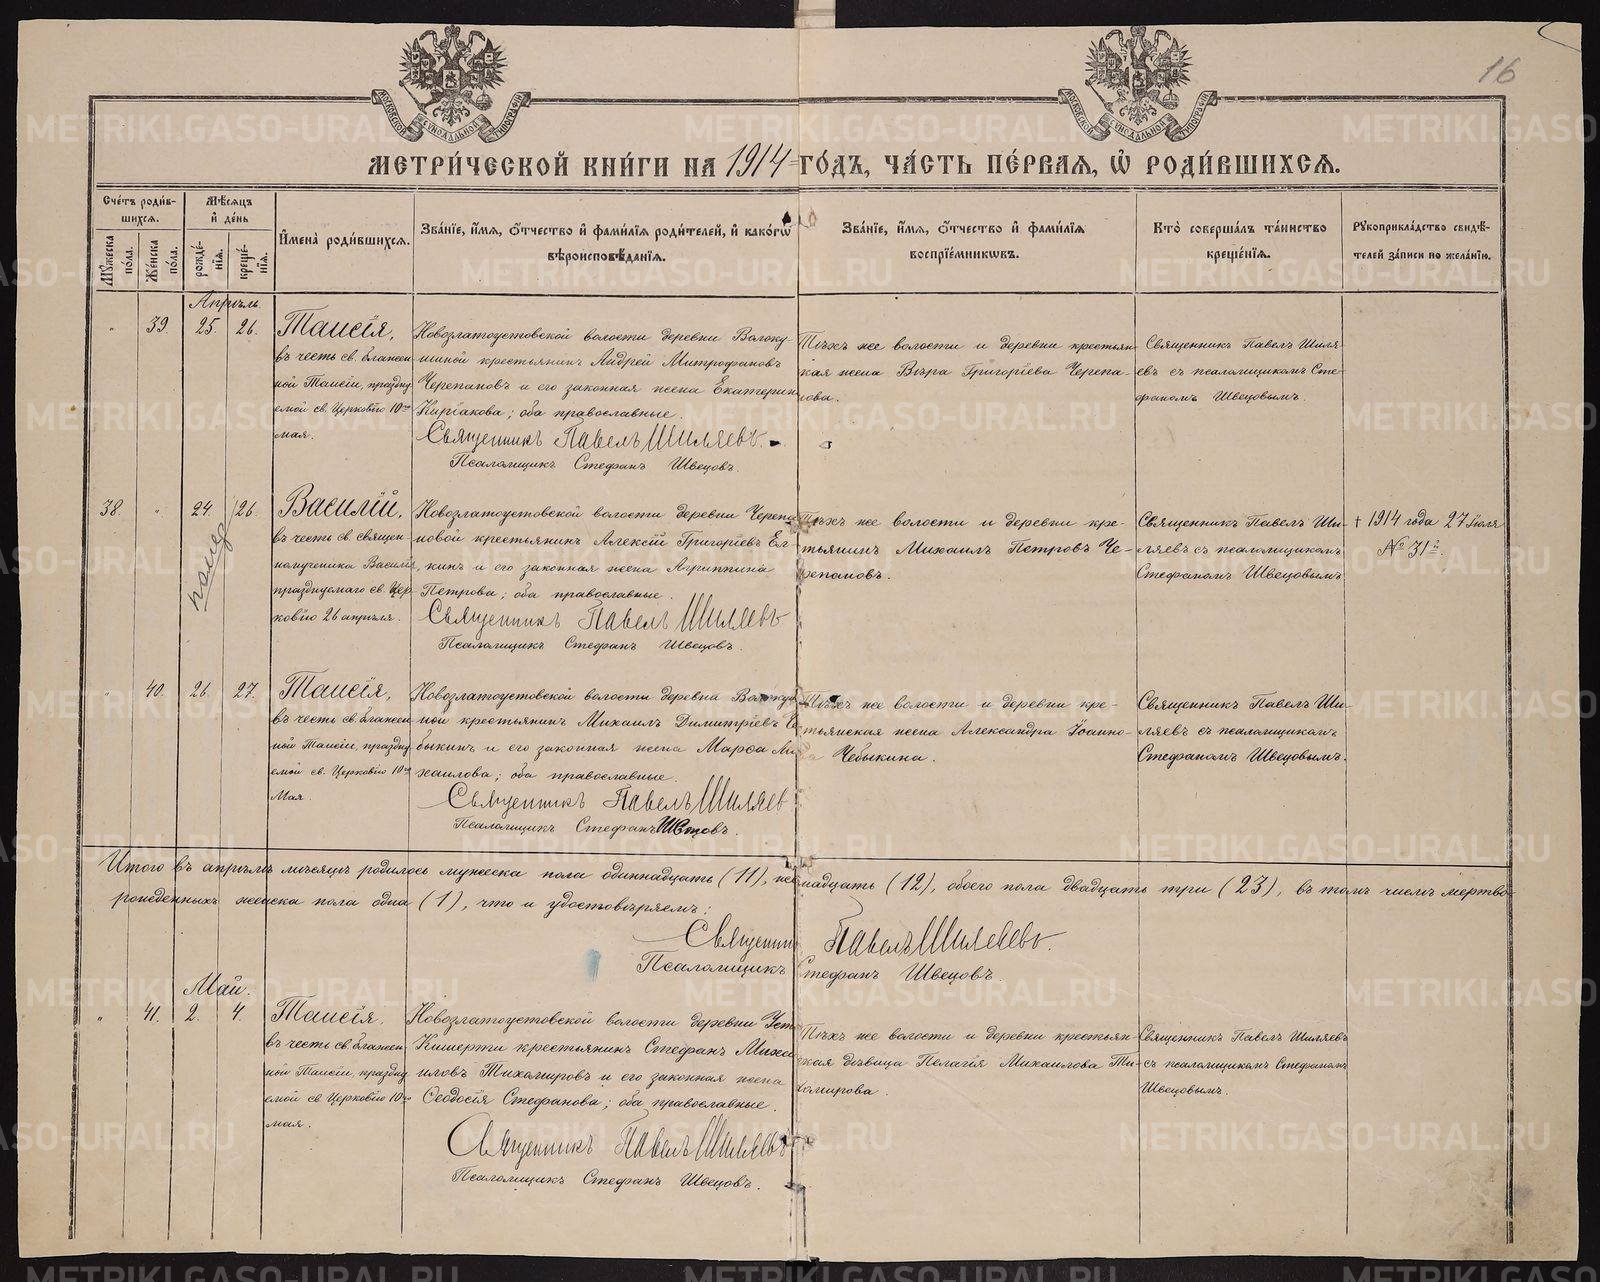 16
МОСКОВСКОЙ СѴНОДАЛЬНОЙ ТИПОГРАФІИ
МОСКОВСКОЙ СѴНОДАЛЬНОЙ ТИПОГРАФІИ
МЕТРИ́ЧЕСКОЙ КНИ́ГИ НА 1914 ГО́ДЪ, ЧА́СТЬ ПЕ́РВАЯ, Ѡ҆ РОДИ́ВШИХСЯ.
Сче́тъ роди́в-
шихся.
Мѣ́сяцъ
и҆ де́нь
Му́жеска по́ла.
Же́нска по́ла.
рожде́-нїя.
креще́-нїя.
И҆мена̀ роди́вшихся.
Зва́нїе, и҆́мя, ѻ҆́тчество и҆ фами́лїя роди́телей, и҆ како́гѡ
вѣроисповѣ́данїя.
Зва́нїе, и҆́мя, ѻ҆́тчество и҆ фами́лїя
воспрїе́мниковъ.
Кто̀ соверша́лъ та́инство
креще́нїя.
Рꙋкоприкла́дство свидѣ́-
телей за́писи по жела́нїю.
Апрѣль.
" 39. 25. 26. Таисія,
въ честь св. блажен
ной Таисіи, праздну
емой св. Церковію 10го
мая.
Новозлатоустовской волости деревни Волоку-
шиной крестьянинъ Андрей Митрофановъ
Черепановъ и его законная жена Екатерин
Киріакова; оба православные.
Священникъ Павелъ Шиляевъ.
Псаломщикъ Стефанъ Швецовъ.
Тѣхъ же волости и деревни крестьян
кая жена Вѣра Григоріева Черепа-
нова.
Священникъ Павелъ Шиля-
евъ съ псаломщикомъ Сте-
фаномъ Швецовымъ.
38. " 24. 26. Василій,
въ честь св. священ
номученика Василі
празднуемаго св. Цер
ковію 26 апрѣля.
Новозлатоустовской волости деревни Черепа
новой крестьянинъ Алексій Григоріевъ Ел
кинъ и его законная жена Агриппина
Петрова; оба православные.
Священникъ Павелъ Шиляевъ
Псаломщикъ Стефанъ Швецовъ.
Тѣхъ же волости и деревни кре-
тьянинъ Михаилъ Петровъ Че-
репановъ.
Священникъ Павелъ Ши-
ляевъ съ псаломщикомъ
Стефаномъ Швецовымъ
+ 1914 года 27 Іюля
№ 31й.
" 40. 26. 27. Таисія,
въ честь св. блажен
ной Таисіи, праздну
емой св. Церковію 10го
Мая.
Новозлатоустовской волости деревни Волокуш
ной крестьянинъ Михаилъ Димитріевъ Че
быкинъ и его законная жена Марѳа Ми
хаилова; оба православные.
Священникъ Павелъ Шиляев
Псаломщикъ Стефанъ Швецовъ.
Тѣхъ же волости и деревни кре-
тьянская жена Александра Іоанно-
ва Чебыкина.
Священникъ Павелъ Ши-
ляевъ съ псаломщикомъ
Стефаномъ Швецовымъ.
Итого въ апрѣлѣ мѣсяцѣ родилось мужеска пола одиннадцать (11), жен надцать (12), обоего пола двадцать три (23), въ томъ числѣ мертво-
рожденныхъ женска пола одна (1), что и удостовѣряемъ:
Священни Павелъ Шиляевъ.
Псаломщикъ Стефанъ Швецовъ.
Май.
" 41. 2. 4. Таисія,
въ честь св. блажен
ной Таисіи, праздну
емой св. Церковію 10го
мая.
Новозлатоустовской волости деревни Усть
Кишерти крестьянинъ Стефанъ Миха
иловъ Тихомировъ и его законная жена
Ѳеодосія Стефанова; оба православные.
Священникъ Павелъ Шиляевъ
Псаломщикъ Стефанъ Швецовъ.
Тѣхъ же волости и деревни крестьян-
ская дѣвица Пелагія Михаилова Ти-
хомирова.
Священникъ Павелъ Шиляевъ
съ псаломщикомъ Стефаномъ
Швецовымъ.
METRIKI.GASO-URAL.RU